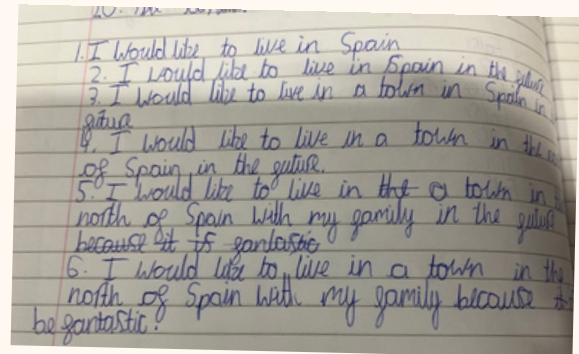 1. I would like to live in Spain
2. I would like to live in Spain in the future
3. I would like to live in a town in Spain in
future
4. I would like to live in a town in the
of Spain in the future.
5. I would like to live in the a town in
north of Spain with my family in the future
because it is fantastic
6. I would like to live in a town in the
north of Spain with my family because
be fantastic.